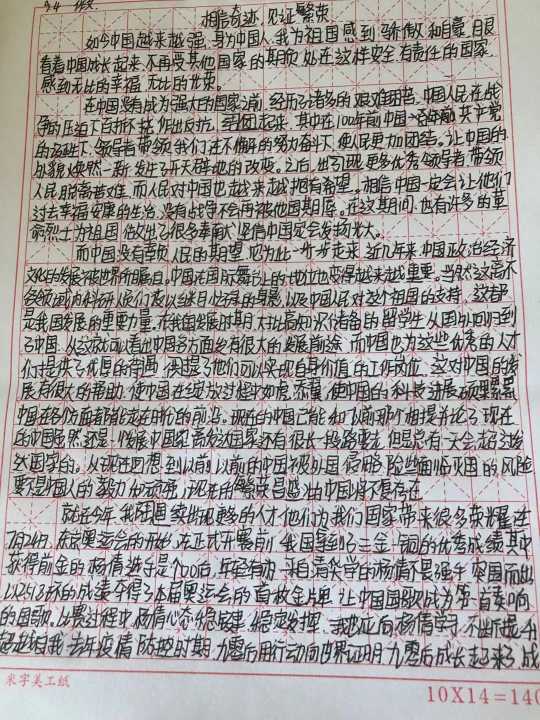 相信奇迹,见证繁荣
如今中国越来越强,身为中国人,我为祖国感到骄傲和自豪,目睹
着中国成长起来,不再受其他国家的期负,处在这样安全有责任的国家,
感到无比的幸福,无比的光荣。
在中国没有成为强大的国家之前,经历了诸多的艰难困苦,中国人民在战
争的压迫下百折不挠,作出反抗,团起来,其中在100年前中国共产党
的诞生下,领导者带领我们在不懈的努力奋斗下,使人民更加团结。让中国的
外貌焕然一新,发生了开天辟地的改变。之后,出现更多优秀领导者,带领
人民脱离苦难,而人民对中国也越来越拥有希望。相信中国一定会让他们
过去幸福安康的生活,没有战争不会再被他国期辱。在这其间,也有许多的革
命烈士为祖国做出了很多奉献,坚信中国定会发扬光大。
而中国没有辜负人民的期望,为此一步步走来,近几年来,中国政治经济
文化的发展被世界所瞩目。中国在国际舞台上的地位也变得越来越重要。当然这离不
各领域内科研人员们夜以继日的身影,以及中国人民对整个祖国的支持,这都
是我国发展的重要力量,在我国发展时期,大批高知识储备的留学生从国外回归到
了中国,从这就可以看出中国多方面是有很大的发展前途,而中国也为这些优秀的人才
们提供了优厚的待遇,提了他们可以实现自身价值的工作岗位,这对中国的发
展有很大的帮助,使中国在绽放过程中如虎添翼,使中国的科技进展硕果累累
中国在各方面都能走在时代的前沿。现在的中国已能和以前那个相提并论了,现在
的中国虽然还是一个发展中国家,离发达国家还有很长一段路要走,但总有一天会超过发
达国家的。从现在回想到以前,以前的中国被外国侵略,险些面临灭国的风险
要是中国人的努力和顽强,现在的繁荣昌盛的中国将不复存在
就在今年,我国陆续出现更多的人才,他们为我们国家带来很多荣耀,在
7月24日,东京奥运会的开始,在正式开赛前,我国拿到了三金一铜的优秀成绩,其中
获得前金的杨倩选手是个00后,年轻有为,来自清华大学的杨倩不畏强手,突围而出
以251.8环的成绩夺得了本届奥运会的首枚金牌,让中国国歌成为第一首奏响
的国歌。比赛过程中,杨倩心态稳健,稳定发挥,我应向杨倩学习,不断提升
超越自我,去年疫情防控时期,九零后用行动向世界证明,九零后成长起来了,成
米字美工纸
10X14=140